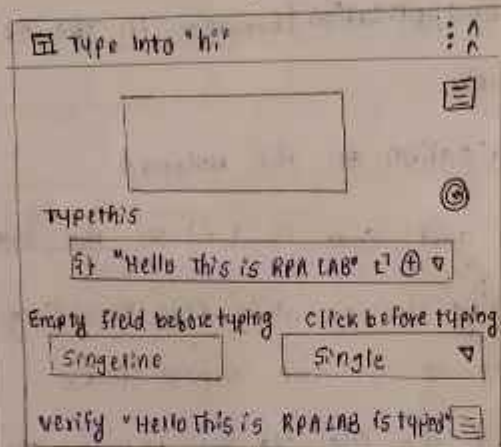 Type into "hi"
Typethis
"Hello This is RPA LAB"
Empty field before typing Click before typing
Singeline Single
verify "Hello This is RPA LAB is typed"